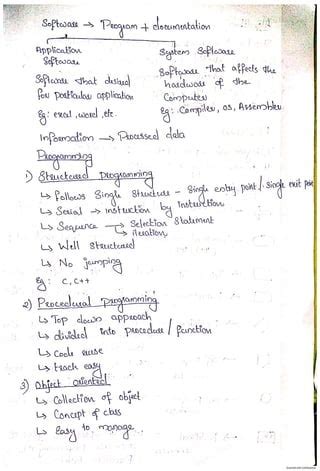 Software → Program + documentation
Application Software
System Software
Software that desired for particular application
Software that affects the hardware of the Computer
Eg: excel, word, etc.
Eg: Compiler, os, Assembler
Information → Processed data
Programming
1) Structured programming
↳ follows Single Structure - Single entry point / Single exit point
↳ Serial → instruction by Instruction
↳ Sequence → Selection Statement
↳ iteration
↳ Well Structured
↳ No jumping
Eg: C, C++
2) Procedural programming
↳ Top down approach
↳ divided into procedure / function
↳ Code reuse
↳ track easy
3) Object oriented
↳ Collection of object
↳ Concept of class
↳ Easy to manage.